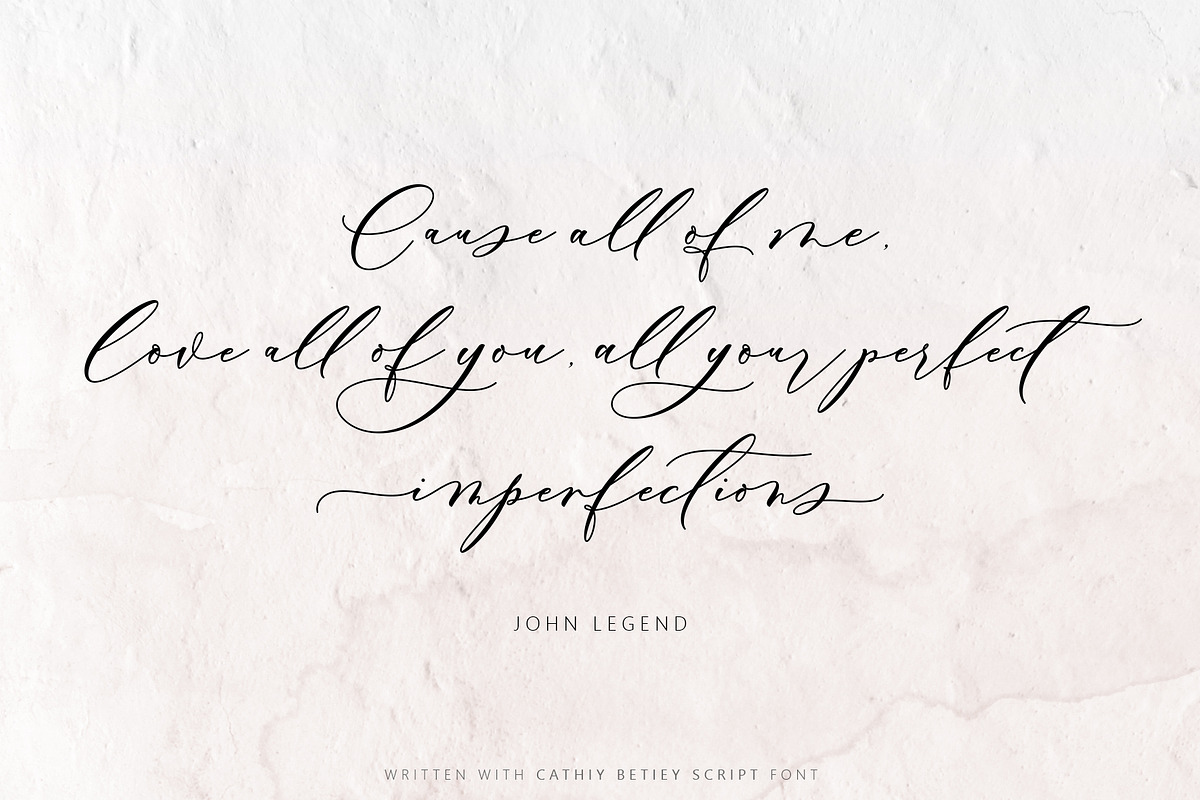 Cause all of me,
love all of you, all your perfect
imperfections
JOHN LEGEND
WRITTEN WITH CATHIY BETIEY SCRIPT FONT